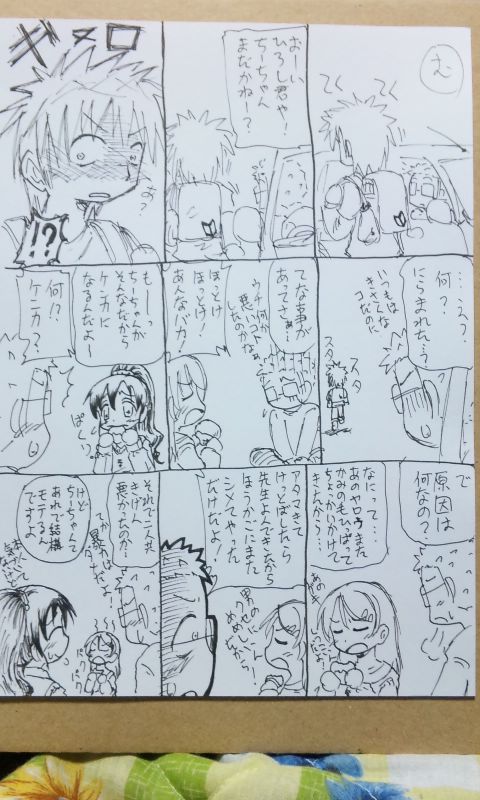 む
おーい
ひろし君や！
ちーちゃん
まだかねー？
ギロ
あ？
!?
…え？
何？
にらまれた…？
いつもは
きさくな
コなのに
スタ
スタ
てな事が
あってさぁ…
ウチ何か
悪いコト
したのかなぁ
ほっとけ
ほっとけ！
あんなバカ！
もーっ
ちーちゃんが
そんなだから
ケンカに
なるんだよー
何!?
ケンカ？
で
原因は
何なの？
なにって…
あのヤロウまた
かみの毛ひっぱって
ちょっかいかけて
きたから…
アタマきて
けっとばしたら
先生よんできたから
ほうかごにまた
シメてやった
だけだよ！
男の
くせに
それで二人共
きげん
悪かったの？
けど
ちーちゃん
あれで結構
モテるん
ですよ
パク
パク